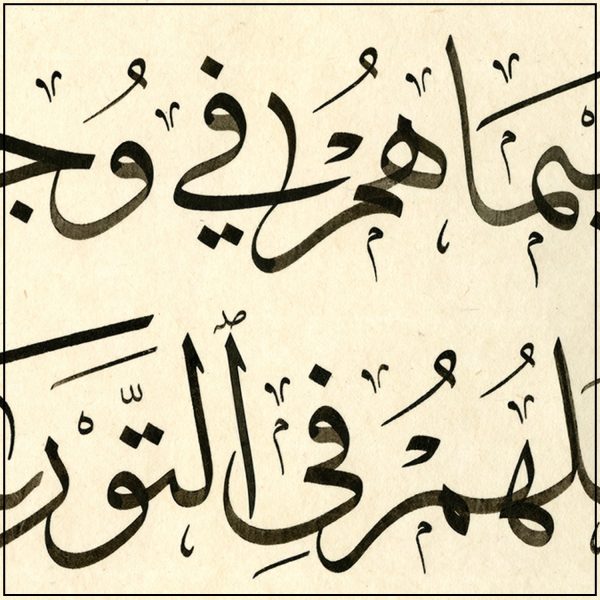 ـيمَاهُمْ فِي وُجـ
ـلُهُمْ فِي ٱلتَّوْر